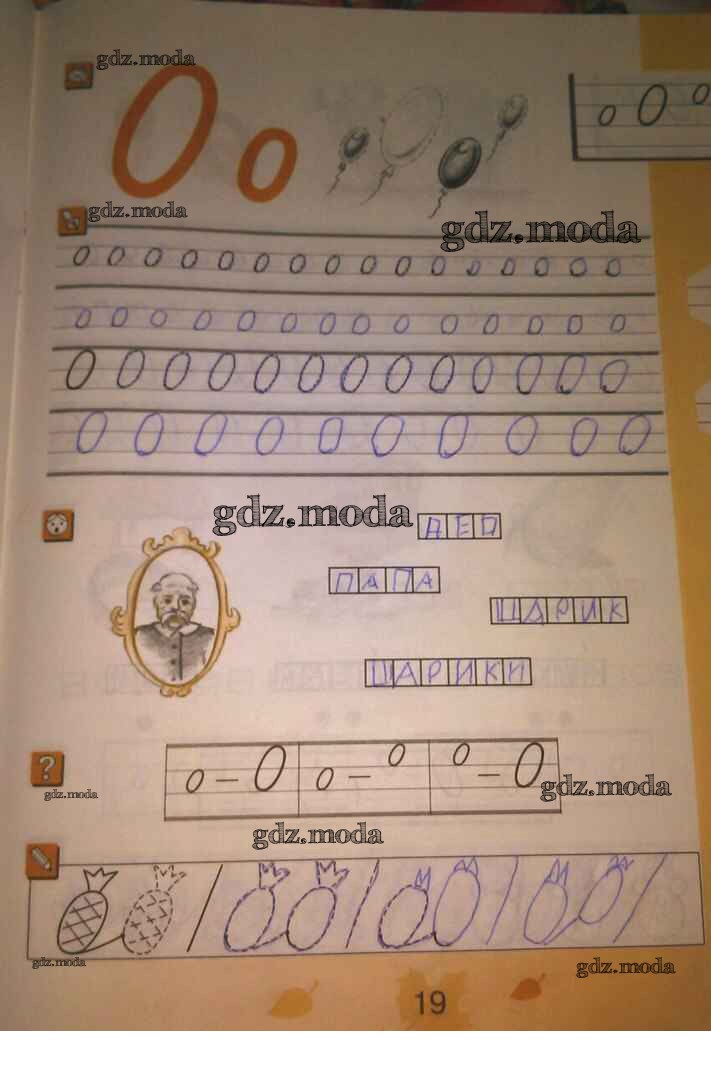 gdz.moda
О о
о О о
gdz.moda
gdz.moda
о о о о о о о о о о о о о о о о
о о о о о о о о о о о о о о
О О О О О О О О О О О О О
О О О О О О О О О О
gdz.moda
ДЕД
ПАПА
ШАРИК
ШАРИКИ
?
о – О о – о о – О
gdz.moda
gdz.moda
gdz.moda
gdz.moda
gdz.moda
19